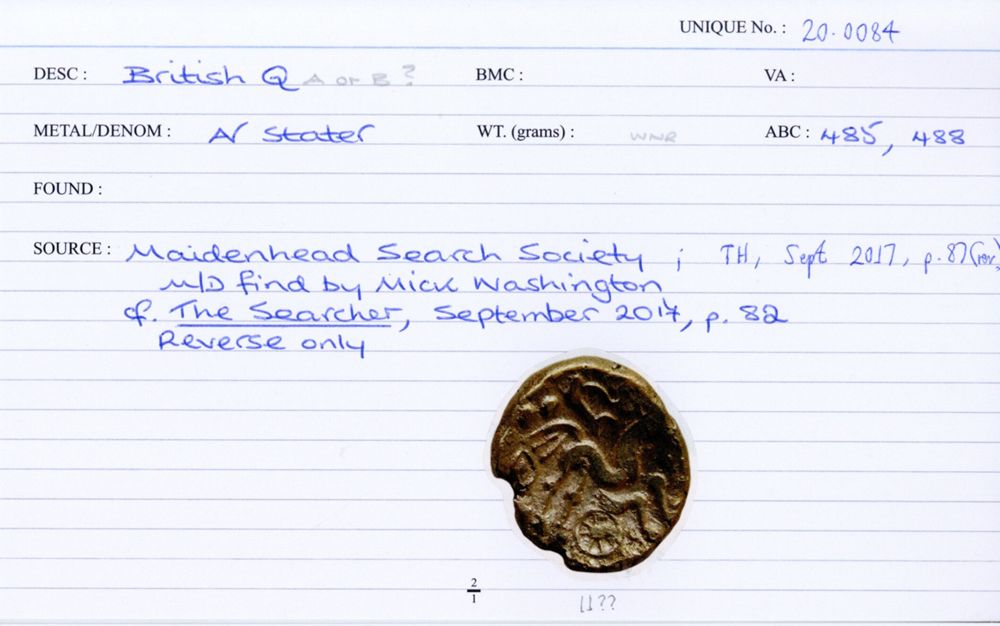 UNIQUE No. : 20.0084
DESC : British Q A or B? BMC : VA :
METAL/DENOM : AV Stater WT. (grams) : WNR ABC : 485, 488
FOUND :
SOURCE : Maidenhead Search Society ; TH, Sept 2017, p.87 (rev.)
M/D find by Mick Washington
cf. The Searcher, September 2017, p. 82
Reverse only
2
1
11??